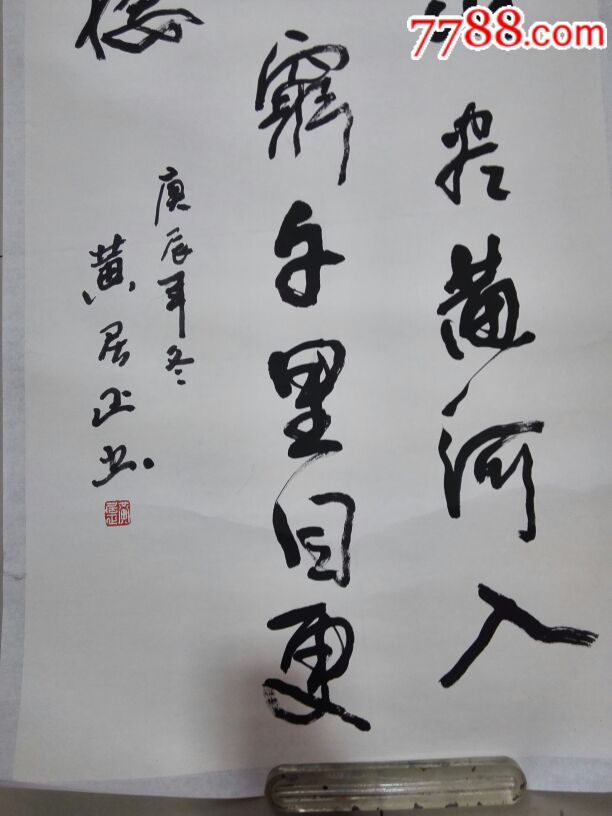 7788.com
尽黄河入
穷千里目更
楼
庚辰年冬
黄居正书
黄居正